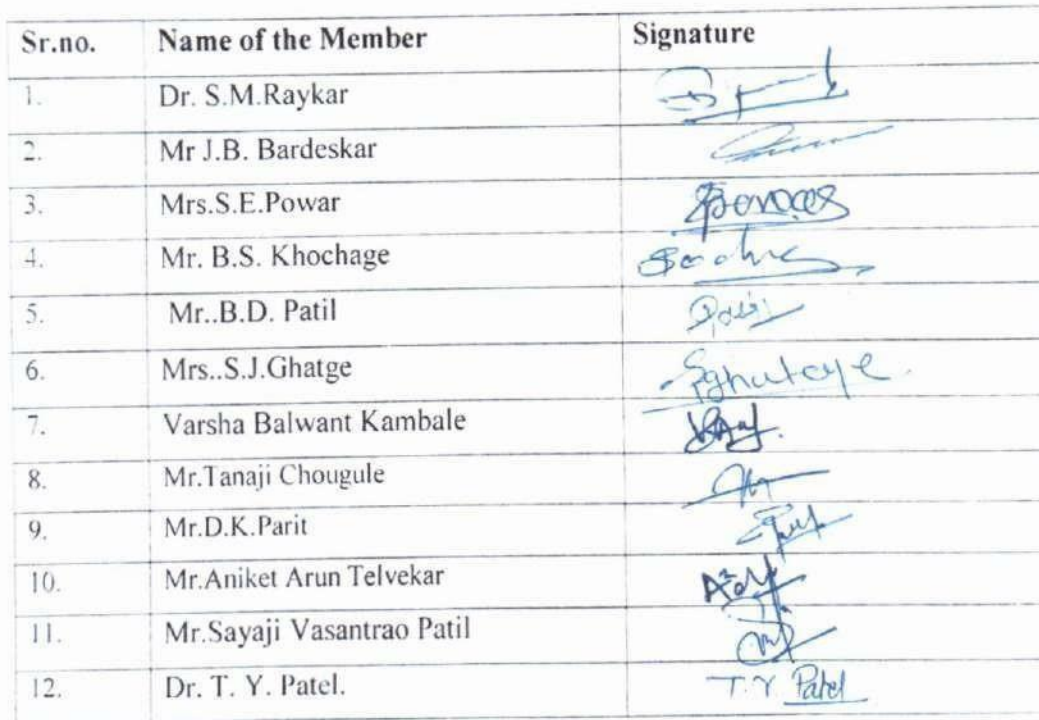 Sr.no. Name of the Member Signature
1. Dr. S.M.Raykar
2. Mr J.B. Bardeskar
3. Mrs.S.E.Powar
4. Mr. B.S. Khochage
5. Mr..B.D. Patil
6. Mrs..S.J.Ghatge
7. Varsha Balwant Kambale
8. Mr.Tanaji Chougule
9. Mr.D.K.Parit
10. Mr.Aniket Arun Telvekar
11. Mr.Sayaji Vasantrao Patil
12. Dr. T. Y. Patel. T.Y Patel